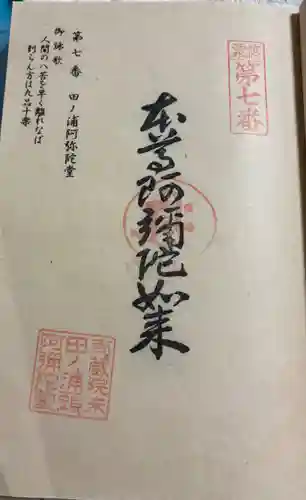 第七番
本尊阿彌陀如来
第七番 田ノ浦阿弥陀堂
御詠歌
人間の八苦を早く離れなば
到らん方は九品十楽
田ノ浦
阿弥陀堂